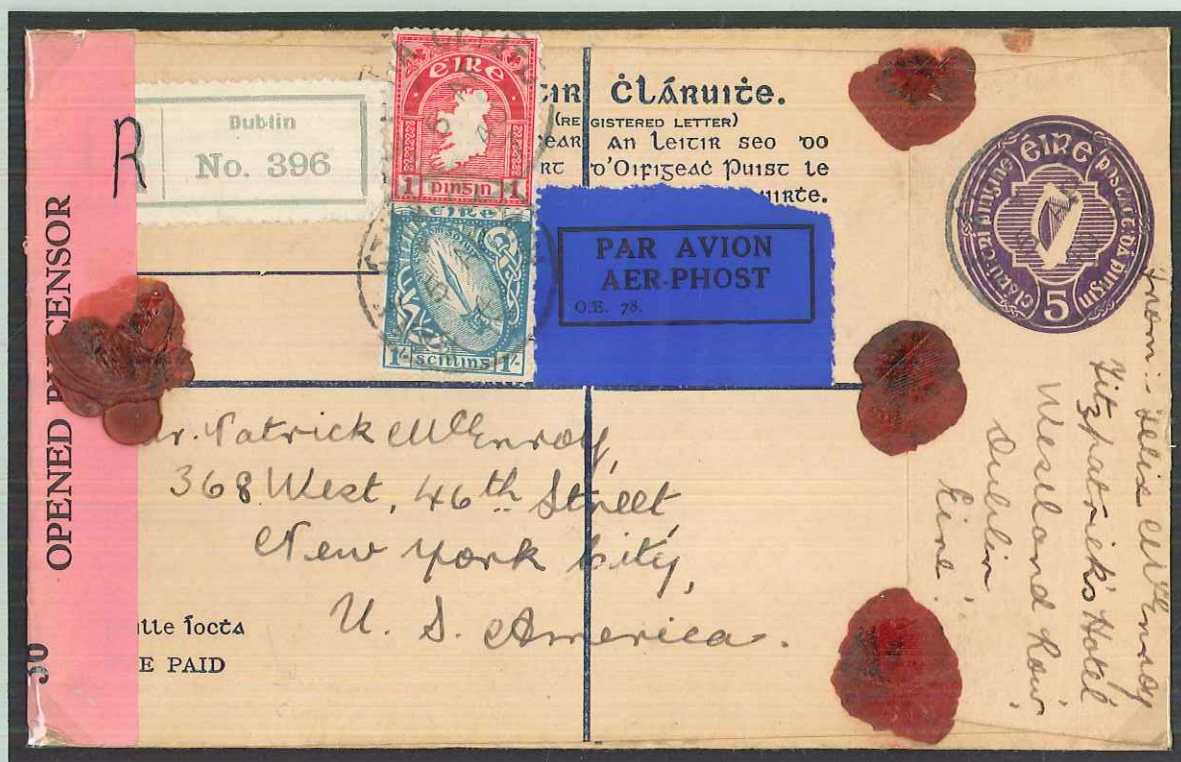 OPENED BY CENSOR
R
Dublin
No. 396
éire
1 pinsin 1
éire
1/- scilling 1/-
TIR CLÁRUIĊE.
(REGISTERED LETTER)
EAR AN LEITIR SEO DO
RT D'OIFIGEAĊ PUIST LE
UIRTE.
PAR AVION
AER-PHOST
O.E. 78.
ÉIRE
5
Mr. Patrick McEnroy,
368 West, 46th Street,
New York City,
U. S. America.
íocta
E PAID
From:- Felix McEnroy
Fitzpatrick's Hotel
Westland Row,
Dublin
Eire